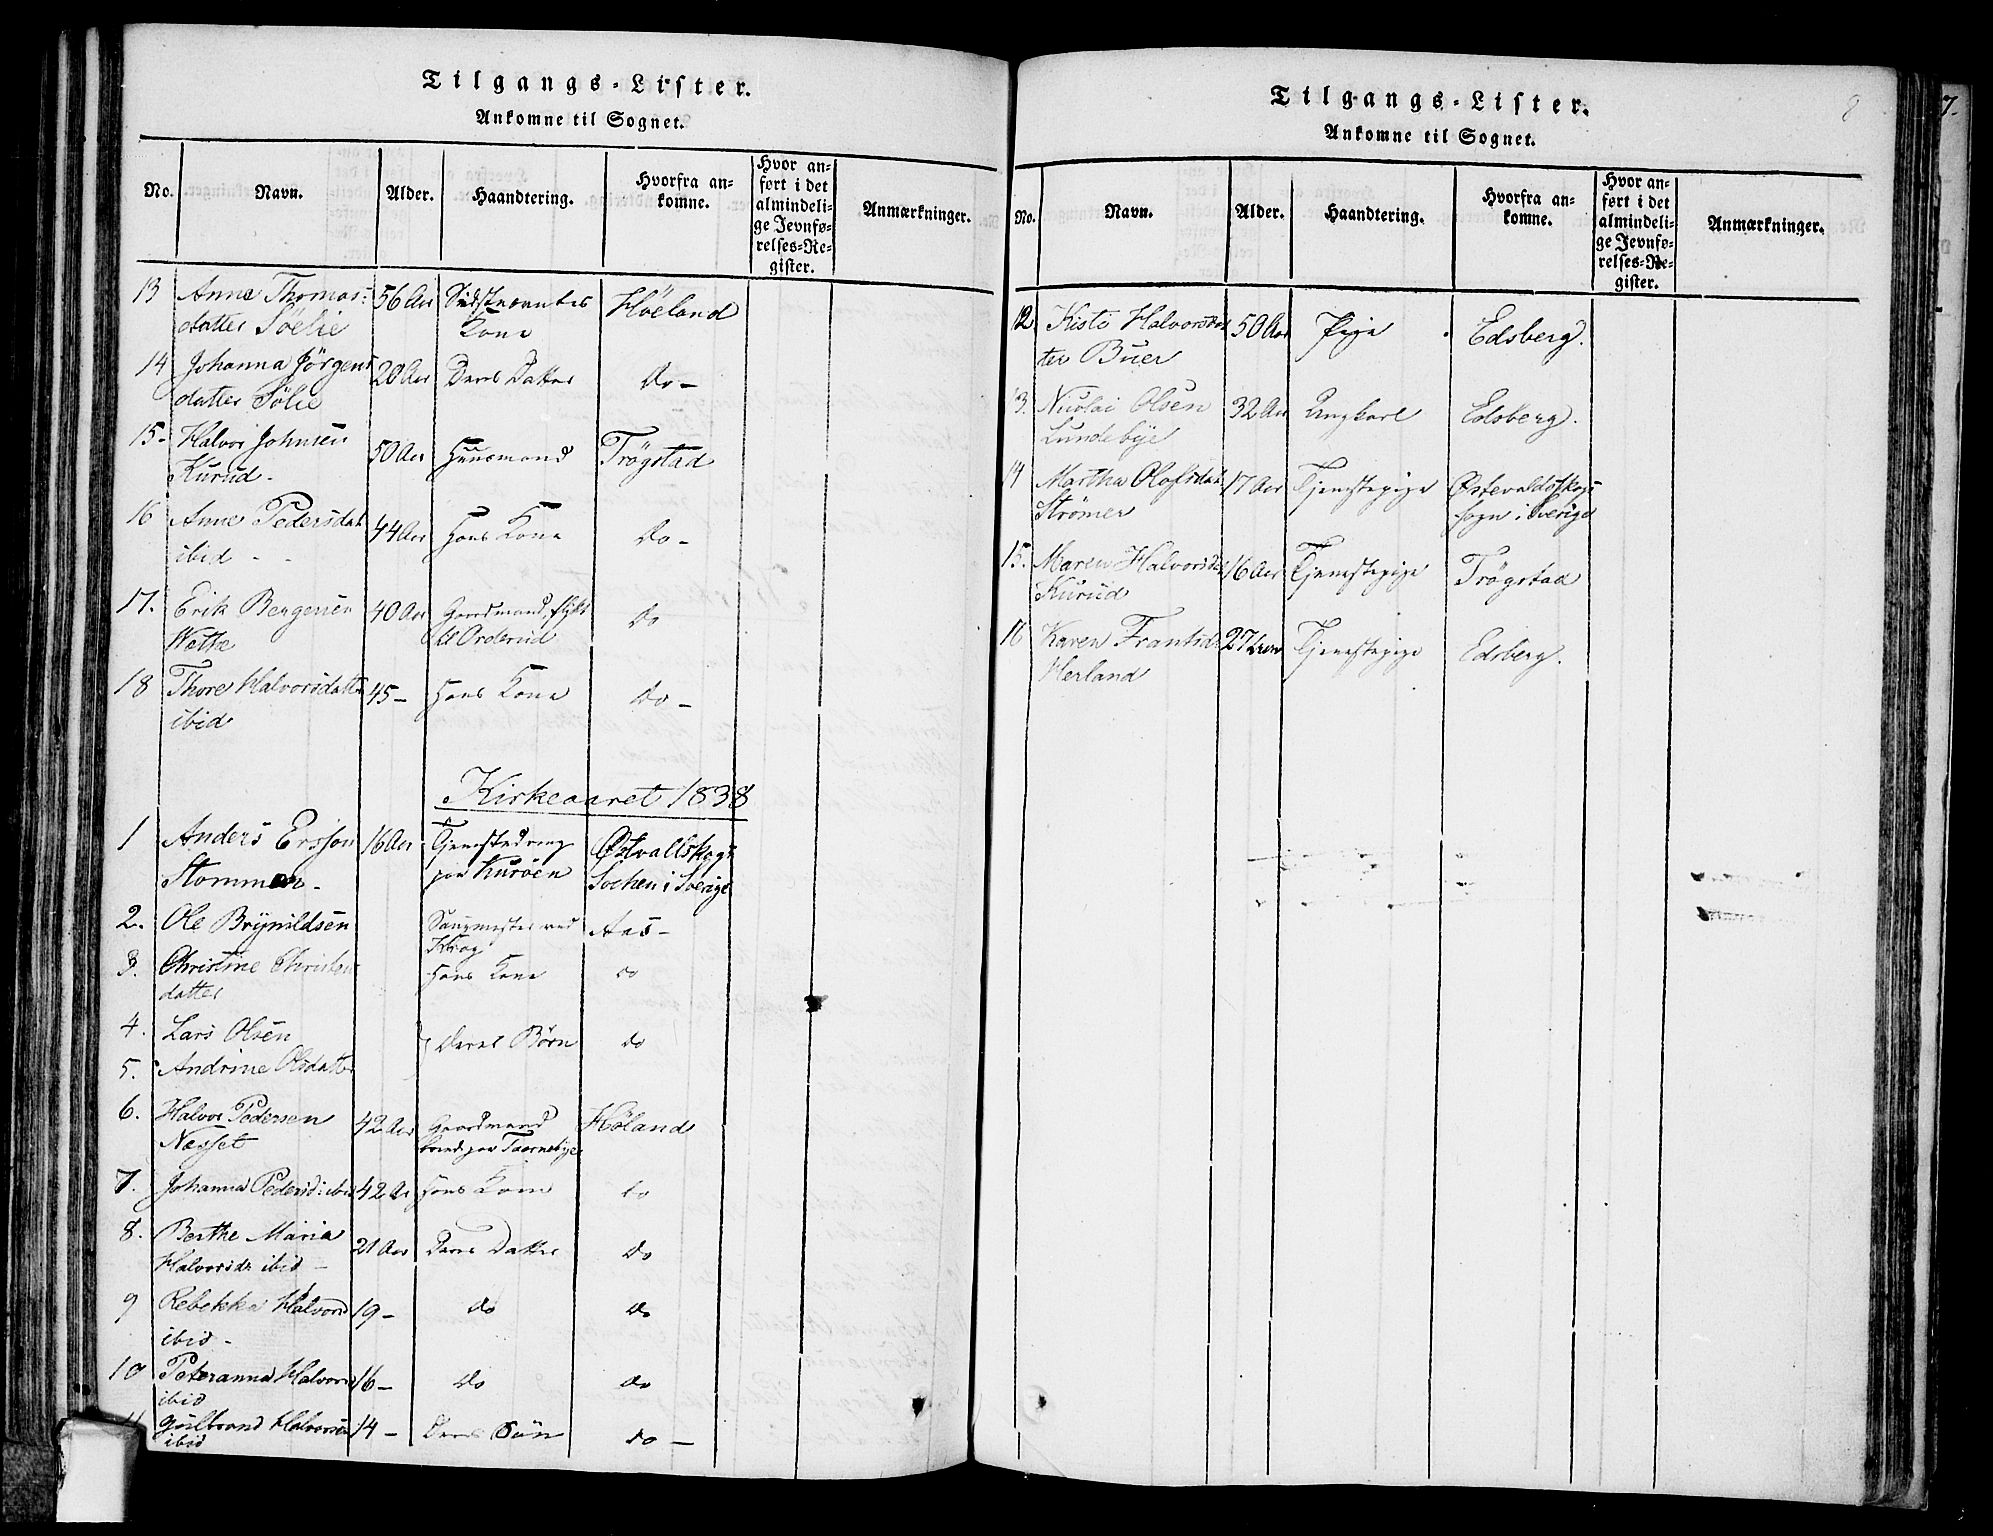 Tilgangs-Lister.
Ankomne til Sognet.
No. Navn. Alder. Haandtering. Hvorfra ankomne. Hvor anført i det almindelige Jevnførelses-Register. Anmærkninger.
13 Anne Thomas: 56 Aar Kone Höeland
datter Söelie
14 Johanna Jörgens 20 Aar Deres Datter Do -
datter Sölie
15- Halvor Johnsen 50 Aar Huusmand Trögstad
Kurud -
16 Anne Pedersdat 44 Aar Hans Kone Do -
ibid -
17. Erik Bergersen 40 Aar Gaardmand, flyt Do
Wette til Orderud
18 Thore Halvorsdatter 45 - Hans Kone Do -
ibid
Kirkeaaret 1838
1 Anders Ersson 16 Aar Tjenestedreng Østvallskogs
Stommen - paa Kuröen Sochen i Sverige
2. Ole Brynildsen Saugmester ved Aas -
Krog
3. Christine Christen Hans Kone do
datter
4. Lars Olsen Deres Børn do
5. Andrine Olsdatter
6. Halvor Pedersen 42 Aar Gaardmand Høland
Nesset
7. Johanna Pedersd: ibid 42 Aar Hans Kone do
8. Berthe Maria 21 Aar Deres Datter do
Halvorsdr ibid -
9 Rebekka Halvorsd 19 - do do
ibid -
10 Peteranna Halvorsd 16 - do do
ibid
11 Gulbrand Halvorsen 14 - Deres Sön do -
ibid
Tilgangs-Lister.
8
7.
Ankomne til Sognet.
No. Navn. Alder. Haandtering. Hvorfra ankomne. Hvor anført i det almindelige Jevnførelses-Register. Anmærkninger.
12 Kisti Halvorsdat 50 Aar Pige Edsberg.
ter Buer
13. Nicolai Olsen 32 Aar Ungkarl Edsberg.
Lundebye
14 Martha Olofsdat: 17 Aar Tjenestepige Østevaldsskogs
Strömer sogn i Sverige
15. Maren Halvorsdr 16 Aar Tjenestepige Trögstad
Kurud
16 Karen Frantsdr 27 Tjenestepige Edsberg.
Herland